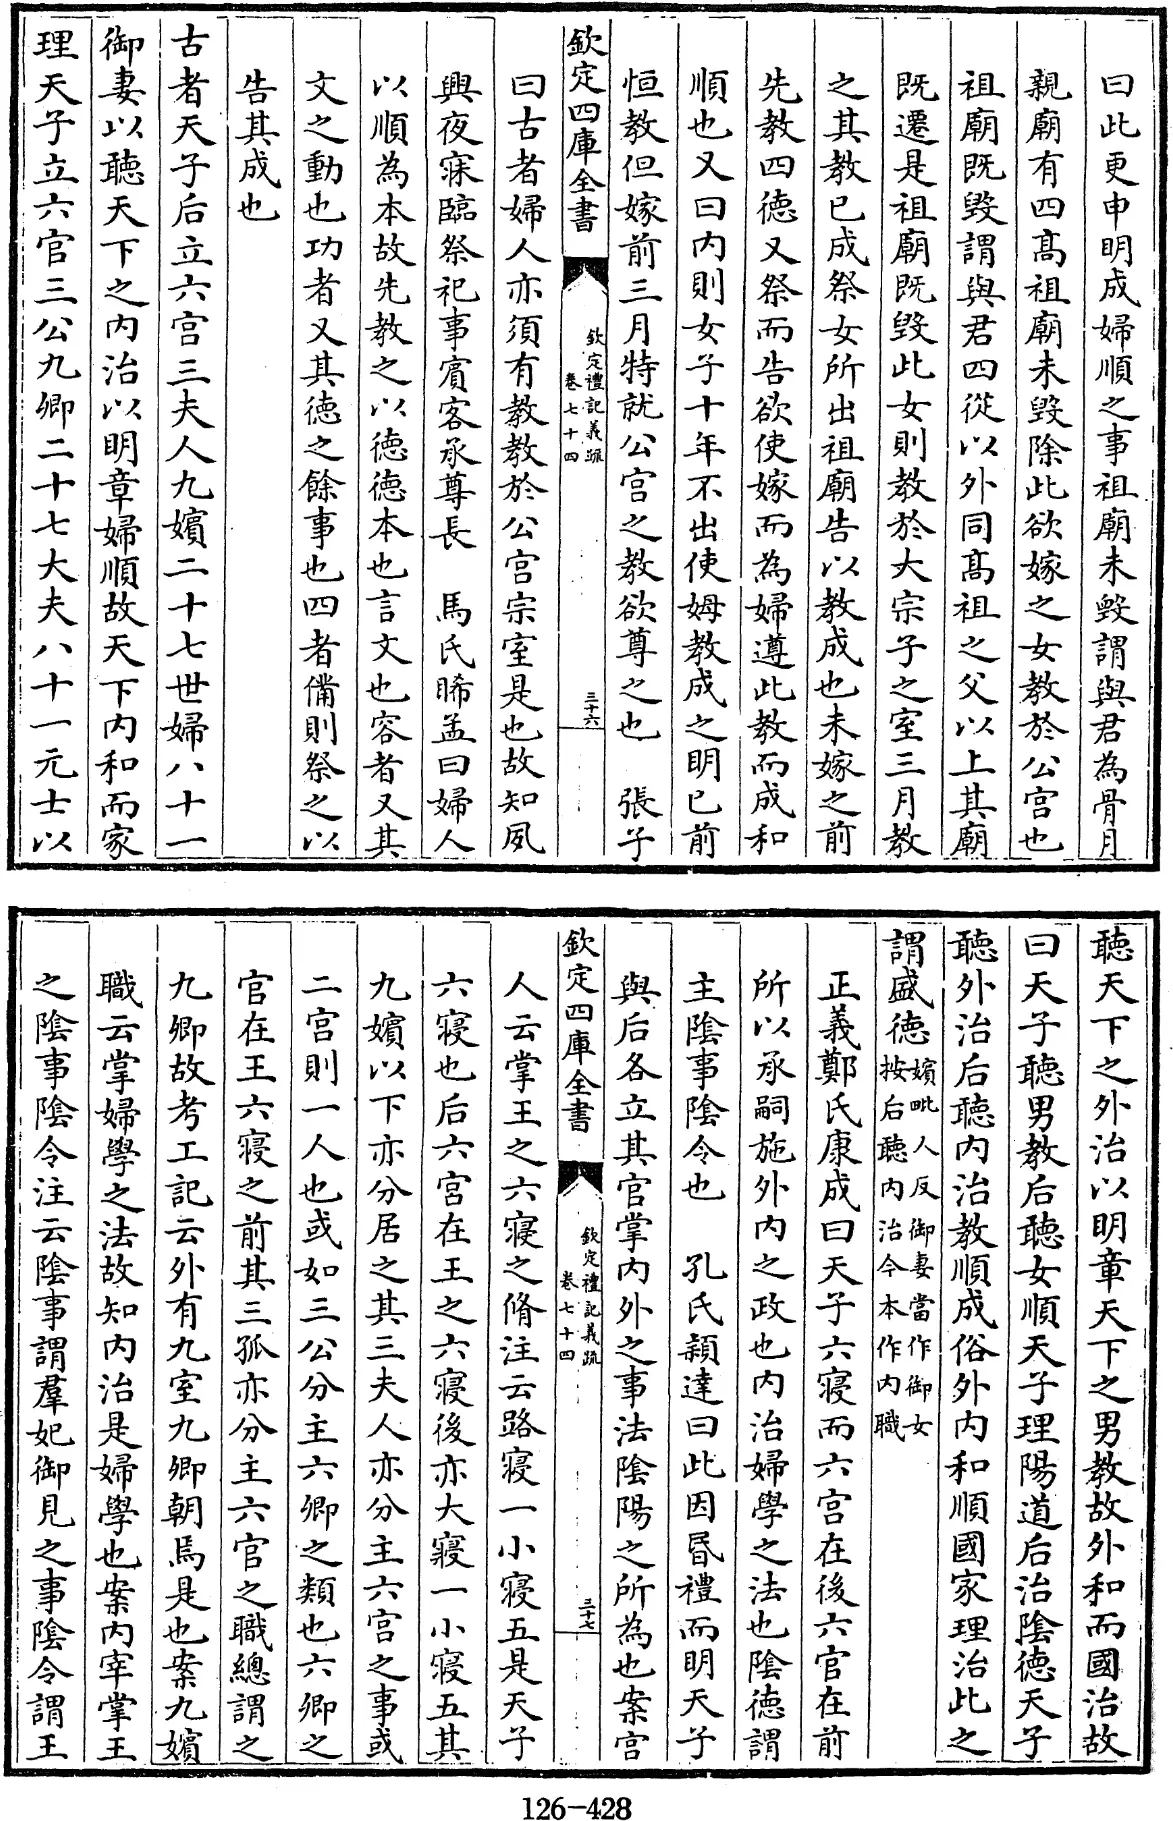 曰此更申明成婦順之事祖廟未毀謂與君為骨月
親廟有四髙祖廟未毀除此欲嫁之女教於公宫也
祖廟既毀謂與君四從以外同髙祖之父以上其廟
既遷是祖廟既毀此女則教於大宗子之室三月教
之其教已成祭女所出祖廟告以教成也未嫁之前
先教四徳又祭而告欲使嫁而為婦遵此教而成和
順也又曰内則女子十年不出使姆教成之明已前
恒教但嫁前三月特就公宫之教欲尊之也　張子
欽定四庫全書
欽定禮記義疏
卷七十四
三十六
曰古者婦人亦須有教教於公宫宗室是也故知夙
興夜寐臨祭祀事賔客承尊長　馬氏晞孟曰婦人
以順為本故先教之以徳徳本也言文也容者又其
文之動也功者又其徳之餘事也四者備則祭之以
告其成也
古者天子后立六宫三夫人九嬪二十七世婦八十一
御妻以聽天下之内治以明章婦順故天下内和而家
理天子立六官三公九卿二十七大夫八十一元士以
聽天下之外治以明章天下之男教故外和而國治故
曰天子聽男教后聽女順天子理陽道后治陰徳天子
聽外治后聽内治教順成俗外内和順國家理治此之
謂盛徳嬪毗人反御妻當作御女按后聽内治今本作内職
正義鄭氏康成曰天子六寢而六宫在後六官在前
所以承嗣施外内之政也内治婦學之法也陰徳謂
主陰事陰令也　孔氏穎達曰此因昬禮而明天子
與后各立其官掌内外之事法陰陽之所為也案宫
欽定四庫全書
欽定禮記義疏
卷七十四
三十七
人云掌王之六寢之脩注云路寢一小寢五是天子
六寢也后六宫在王之六寢後亦大寢一小寢五其
九嬪以下亦分居之其三夫人亦分主六宫之事或
二宫則一人也或如三公分主六卿之類也六卿之
官在王六寢之前其三孤亦分主六官之職總謂之
九卿故考工記云外有九室九卿朝焉是也案九嬪
職云掌婦學之法故知内治是婦學也案内宰掌王
之陰事陰令注云陰事謂羣妃御見之事陰令謂王
126-428